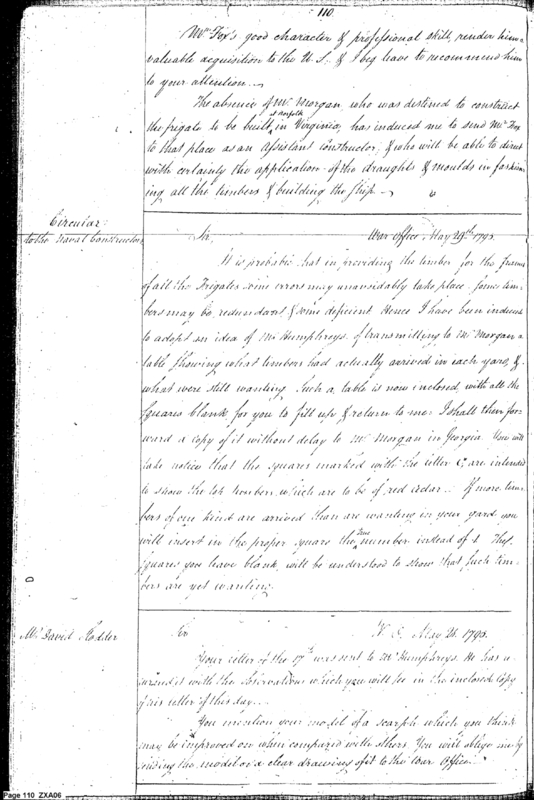 110.
Mr. Fox's good character & professional skill, render him a
valuable acquisition to the U.S. & I beg leave to recommend him
to your attention.
The absence of Mr. Morgan, who was destined to construct
the frigate to be built at Norfolk in Virginia, has induced me to send Mr. Fox
to that place as an assistant constructor, & who will be able to direct
with certainty the application of the draughts & moulds in fashion
ing all the timbers & building the ship.
Circular
to the Naval Constructors
Sir, War Office, May 29th 1795.
It is probable that in providing the timber for the frames
of all the Frigates some errors may unavoidably take place. Some tim
bers may be redundant & some deficient. Hence I have been induced
to adopt an idea of Mr. Humphreys, of transmitting to Mr. Morgan a
table shewing what timbers had actually arrived in each yard, &
what were still wanting. Such a table is now inclosed, with all the
squares blank for you to fill up & return to me: I shall then for
ward a copy of it without delay to Mr. Morgan in Georgia. You will
take notice that the squares marked with the letter C, are intended
to show the top timbers which are to be of red cedar. If more tim
bers of one kind are arrived than are wanting in your yard you
will insert in the proper square the true number instead of 1. The
squares you leave blank will be understood to show that such tim
bers are yet wanting.
Mr. David Stodder
Sir May 28. 1795.
Your letter of the 17th was sent to Mr. Humphreys. He has re
turned it with the observations which you will see in the inclosed copy
of his letter of this day.
You mention your model of a scarph which you think
may be improved on when compared with others. You will oblige me by
sending the model or a clear drawing of it to the War Office.
Page 110 ZXA06